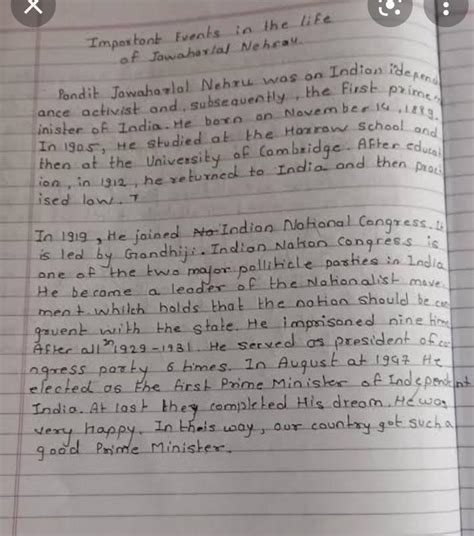 Important Events in the life
of Jawaharlal Nehrau.
Pandit Jawaharlal Nehru was an Indian idepend
ance activist and, subsequently, the first prime
inister of India. He born on November 14, 1889.
In 1905, He studied at the Harrow School and
then at the University of Cambridge. After educat
ion, in 1912, he returned to India and then pract
ised law.
In 1919, He joined Indian National Congress. It
is led by Gandhiji. Indian Nation Congress is
one of the two major polliticle parties in India
He become a leader of the Nationalist move
ment. which holds that the nation should be con
gruent with the state. He imprisoned nine time
After all in 1929-1931. He served as president of co
ngress party 6 times. In August at 1947 He
elected as the first Prime Minister of Independent
India. At last they completed His dream. He was
very happy. In theis way, our country got such a
good Prime Minister.